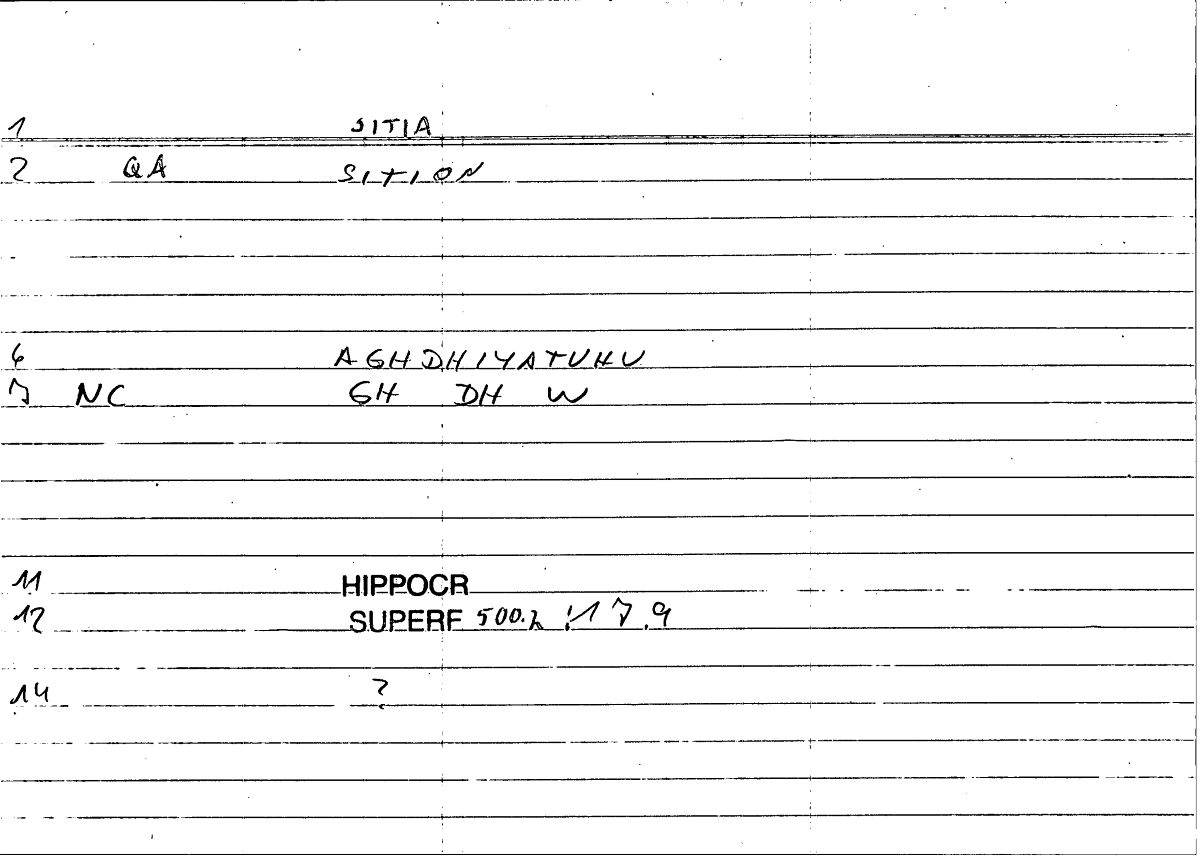 1 SITIA
2 QA SITION
6 AGHDHIYATUHU
7 NC GH DH W
11 HIPPOCR
12 SUPERF 500.2 : 17.9
14 ?